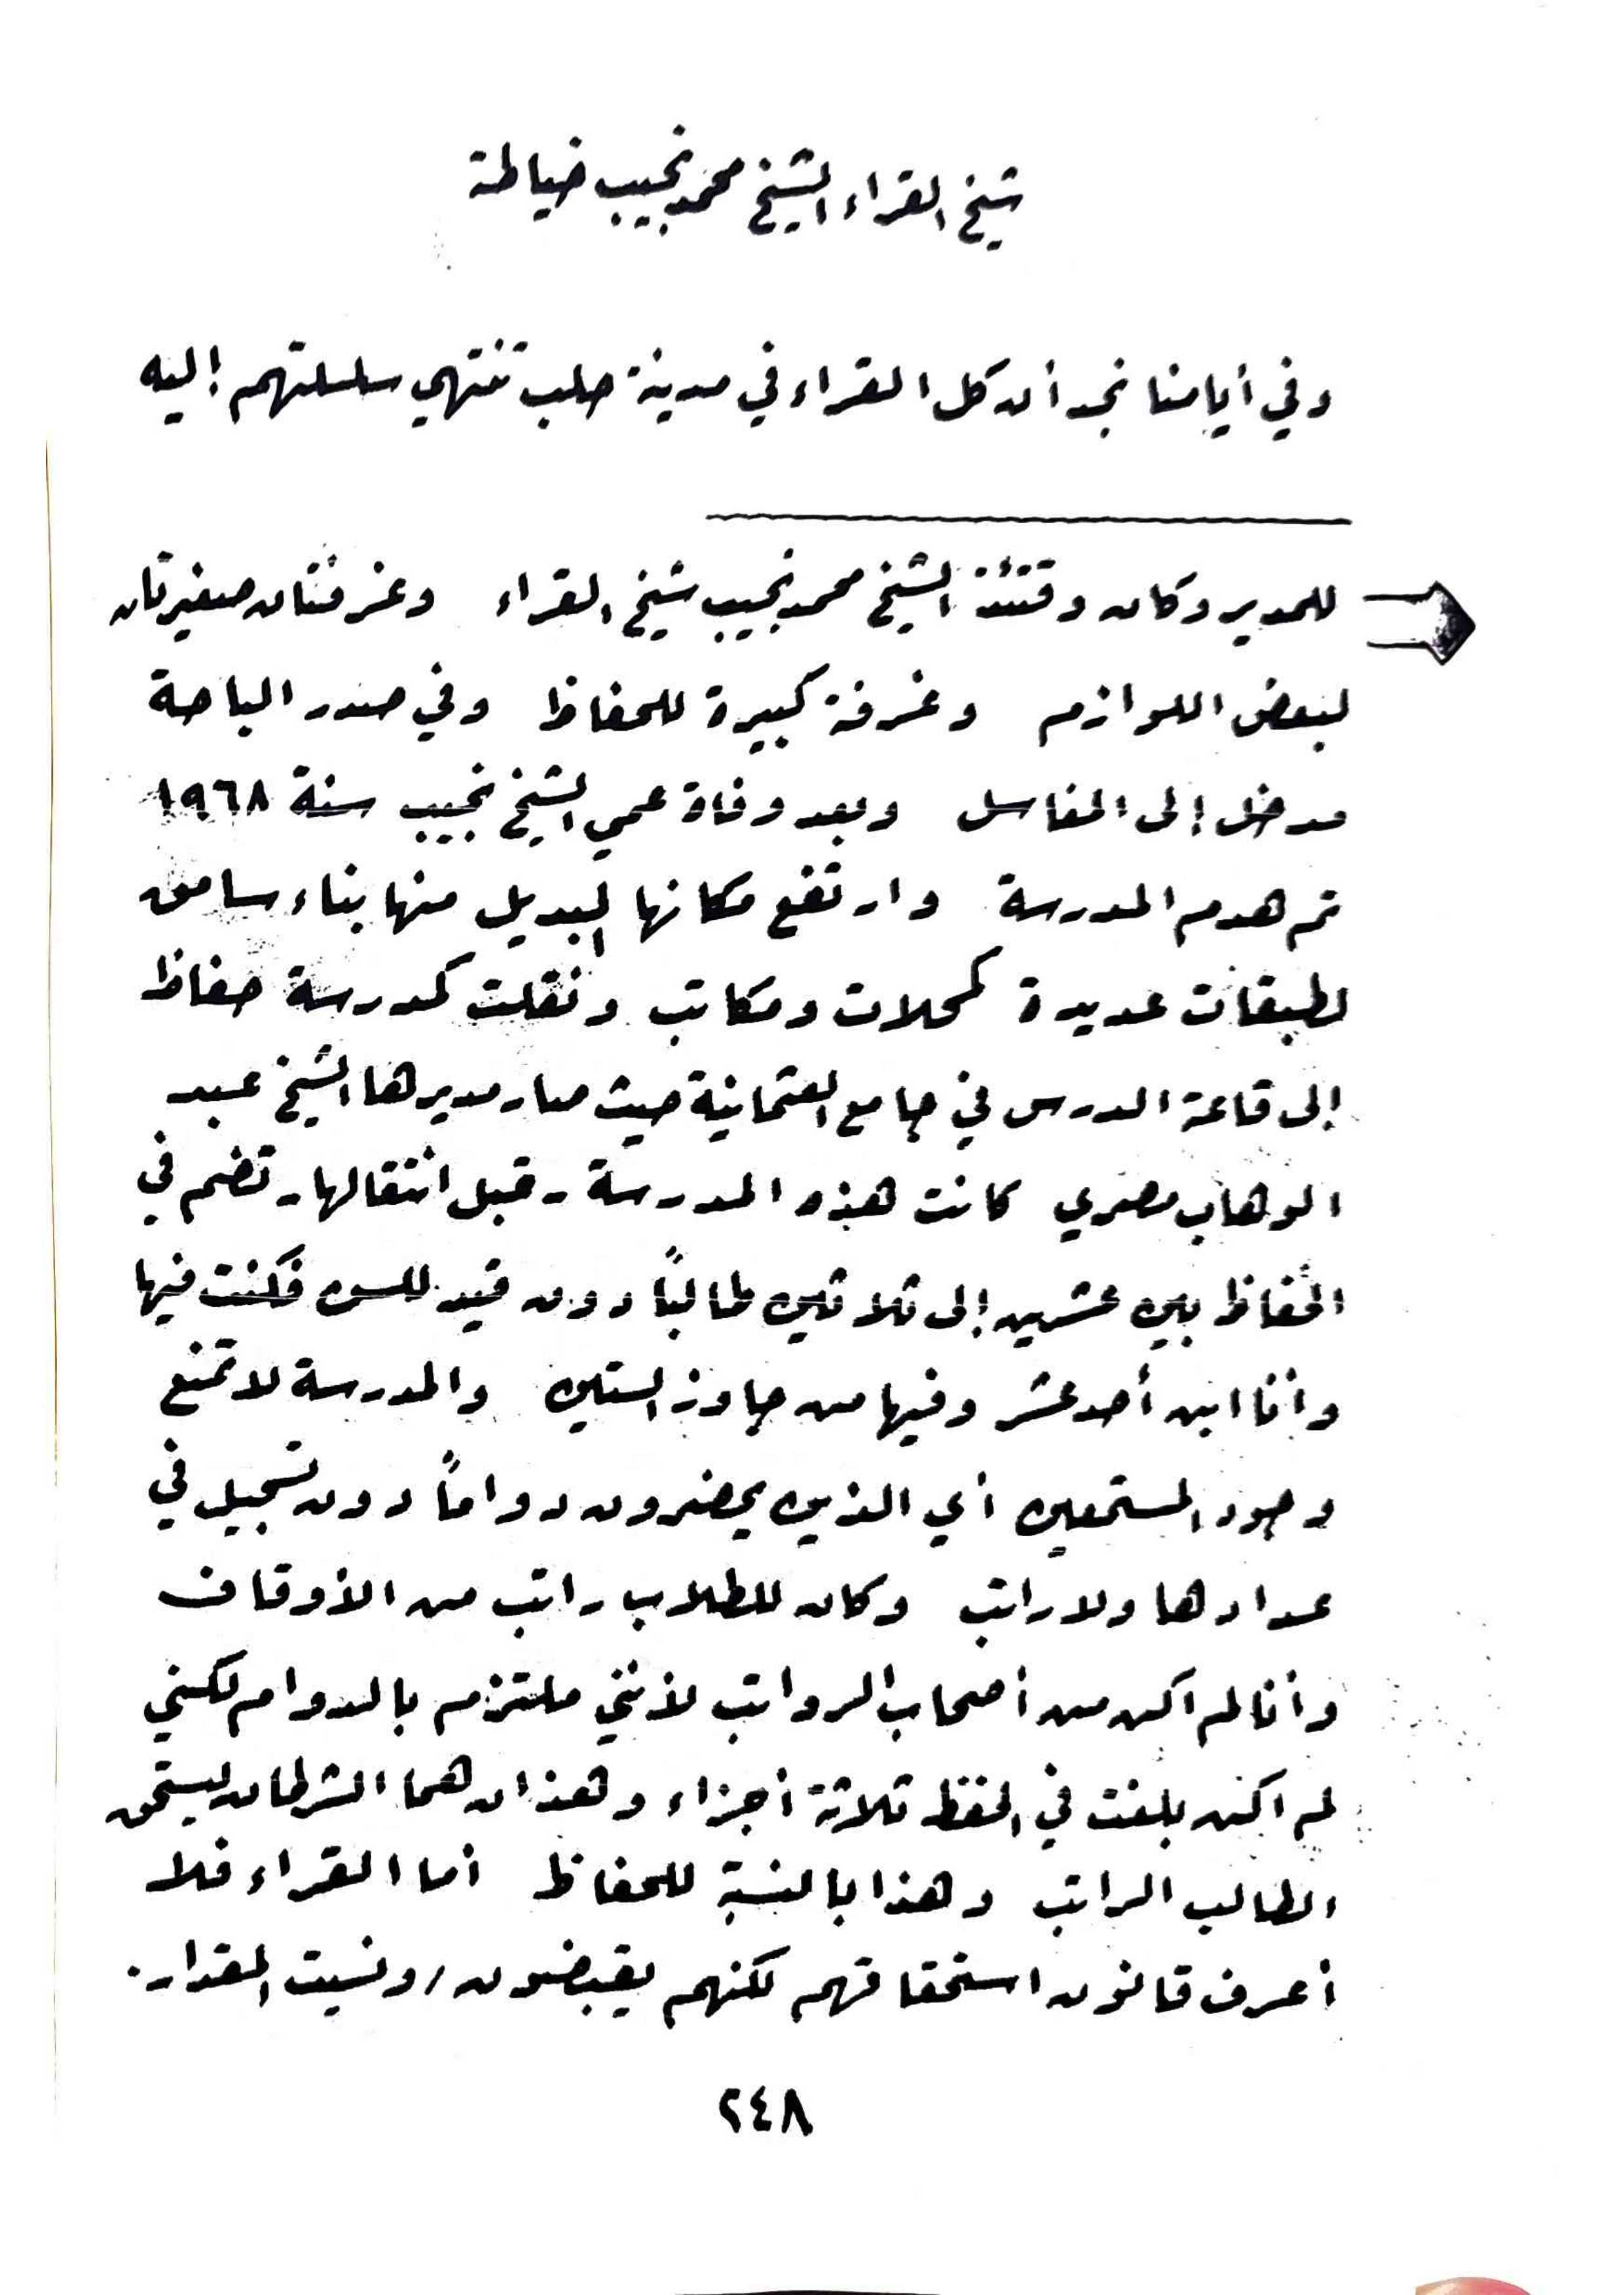 شيخ القراء الشيخ محمد نجيب خياطة
وفي أيامنا نجد أن كل القراء في مدينة حلب تنتهي سلسلتهم إليه
للمدير وكان وقتئذ الشيخ محمد نجيب شيخ القراء وغرفتان صغيرتان
لبعض اللوازم وغرفة كبيرة للحفاظ وفي صدر الباحة
مدخل إلى المغاسل وبعد وفاة عمي الشيخ نجيب سنة ١٩٦٨
تم هدم المدرسة وارتفع مكانها البديل منها بناء سامق
لطبقات عديدة كمحلات ومكاتب ونقلت كمدرسة حفاظ
إلى قاعة الدرس في جامع العثمانية حيث صار مديرها الشيخ عبد
الوهاب مصري كانت هذه المدرسة - قبل انتقالها - تضم في
الحُفاظ بين عشرين إلى ثلاثين طالباً دون قيد للسن فكنت فيها
وأنا ابن أحد عشر وفيها من جاوز الستين والمدرسة لا تمنع
وجود المستمعين أي الذين يحضرون دواماً دون تسجيل في
عدادها ولا راتب وكان للطلاب راتب من الأوقاف
وأنا لم اكن من أصحاب الرواتب لأنني ملتزم بالدوام لكنني
لم اكن بلغت في الحفظ ثلاثة أجزاء وهذان هما الشرطان ليستحق
الطالب الراتب وهذا بالنسبة للحفاظ أما القراء فلا
أعرف قانون استحقاقهم لكنهم يقبضون / ونسيت المقدار .
٢٤٨